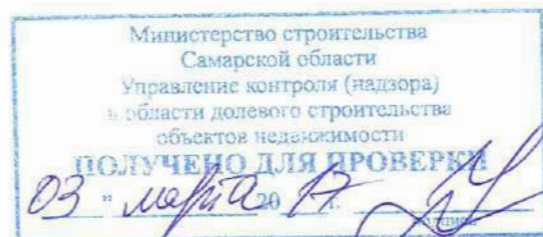 Министерство строительства
Самарской области
Управление контроля (надзора)
в области долевого строительства
объектов недвижимости
ПОЛУЧЕНО ДЛЯ ПРОВЕРКИ
03 " марта 20 17 г.
подпись